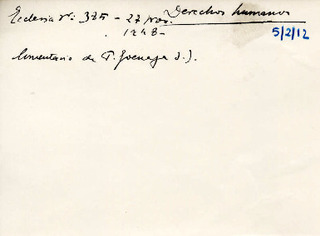 Ecclesia nº: 375 - 27 nov. Derechos humanos
1948-
5/2/12
Comentario de P. J.).